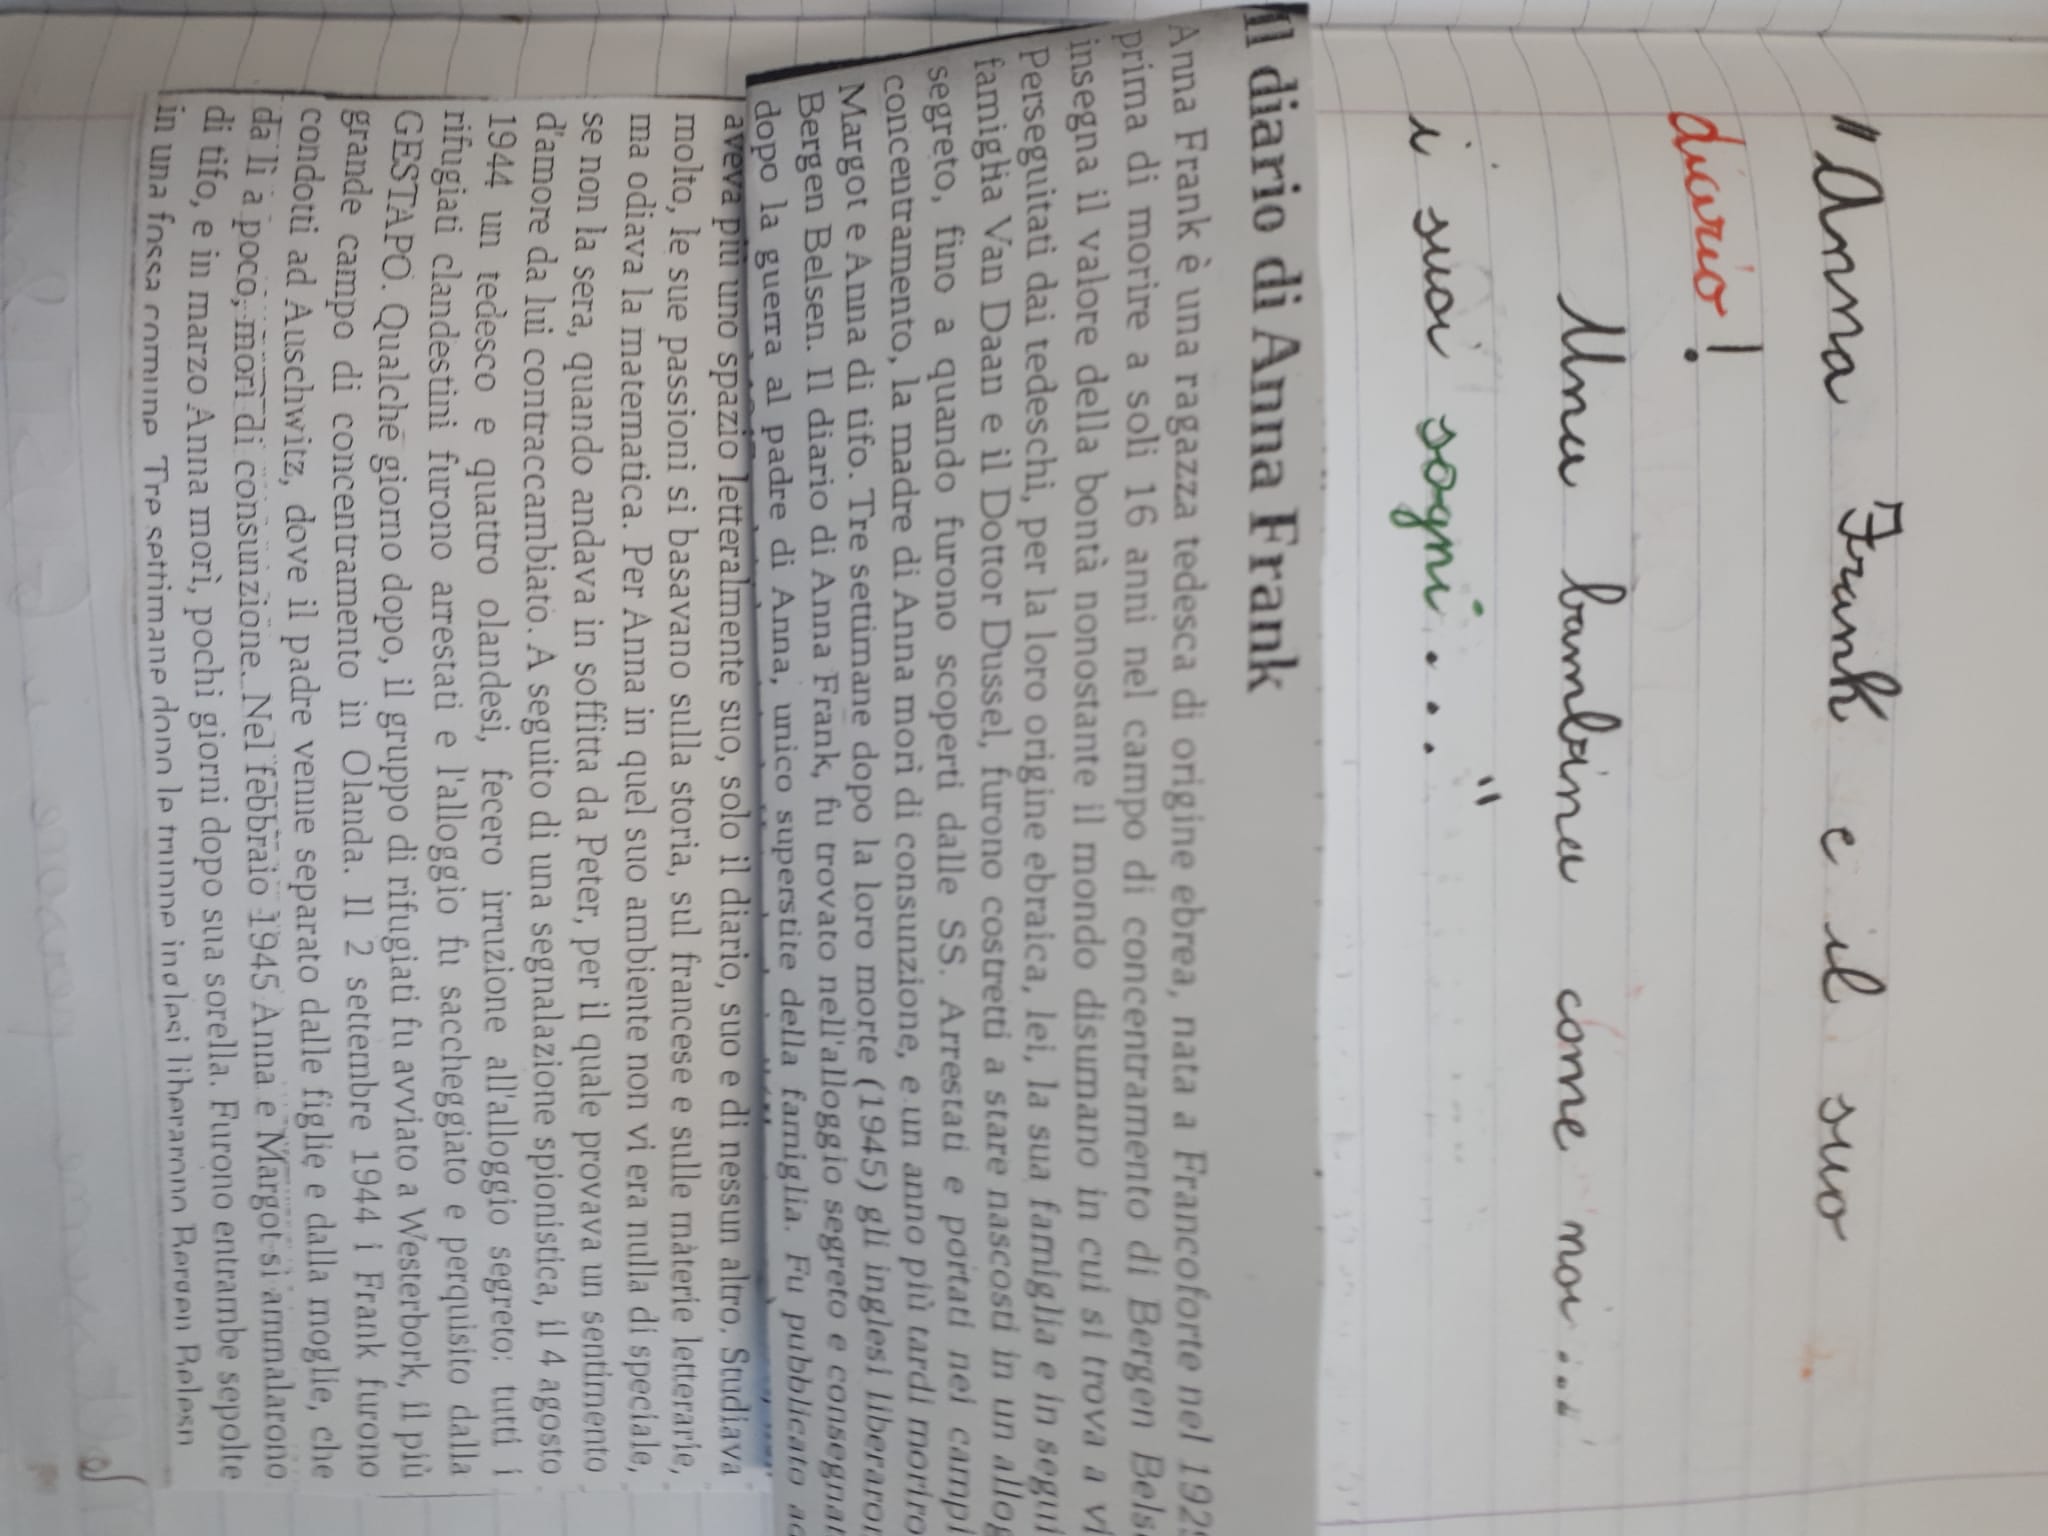 "Anna Frank e il suo
diario!
Una bambina come noi...
i suoi sogni...."
Il diario di Anna Frank
Anna Frank è una ragazza tedesca di origine ebrea, nata a Francoforte nel 192
prima di morire a soli 16 anni nel campo di concentramento di Bergen Bels
insegna il valore della bontà nonostante il mondo disumano in cui si trova a vi
Perseguitati dai tedeschi, per la loro origine ebraica, lei, la sua famiglia e in segui
famiglia Van Daan e il Dottor Dussel, furono costretti a stare nascosti in un allog
segreto, fino a quando furono scoperti dalle SS. Arrestati e portati nei campi
concentramento, la madre di Anna morì di consunzione, e un anno più tardi moriro
Margot e Anna di tifo. Tre settimane dopo la loro morte (1945) gli inglesi liberaro
Bergen Belsen. Il diario di Anna Frank, fu trovato nell'alloggio segreto e consegna
dopo la guerra al padre di Anna, unico superstite della famiglia. Fu pubblicato
aveva più uno spazio letteralmente suo, solo il diario, suo e di nessun altro. Studiava
molto, le sue passioni si basavano sulla storia, sul francese e sulle materie letterarie,
ma odiava la matematica. Per Anna in quel suo ambiente non vi era nulla di speciale,
se non la sera, quando andava in soffitta da Peter, per il quale provava un sentimento
d'amore da lui contraccambiato. A seguito di una segnalazione spionistica, il 4 agosto
1944 un tedesco e quattro olandesi, fecero irruzione all'alloggio segreto: tutti i
rifugiati clandestini furono arrestati e l'alloggio fu saccheggiato e perquisito dalla
GESTAPO. Qualche giorno dopo, il gruppo di rifugiati fu avviato a Westerbork, il più
grande campo di concentramento in Olanda. Il 2 settembre 1944 i Frank furono
condotti ad Auschwitz, dove il padre venne separato dalle figlie e dalla moglie, che
da lì a poco, morì di consunzione. Nel febbraio 1945 Anna e Margot si ammalarono
di tifo, e in marzo Anna morì, pochi giorni dopo sua sorella. Furono entrambe sepolte
in una fossa comune. Tre settimane dopo le truppe inglesi liberarono Bergen Belesn